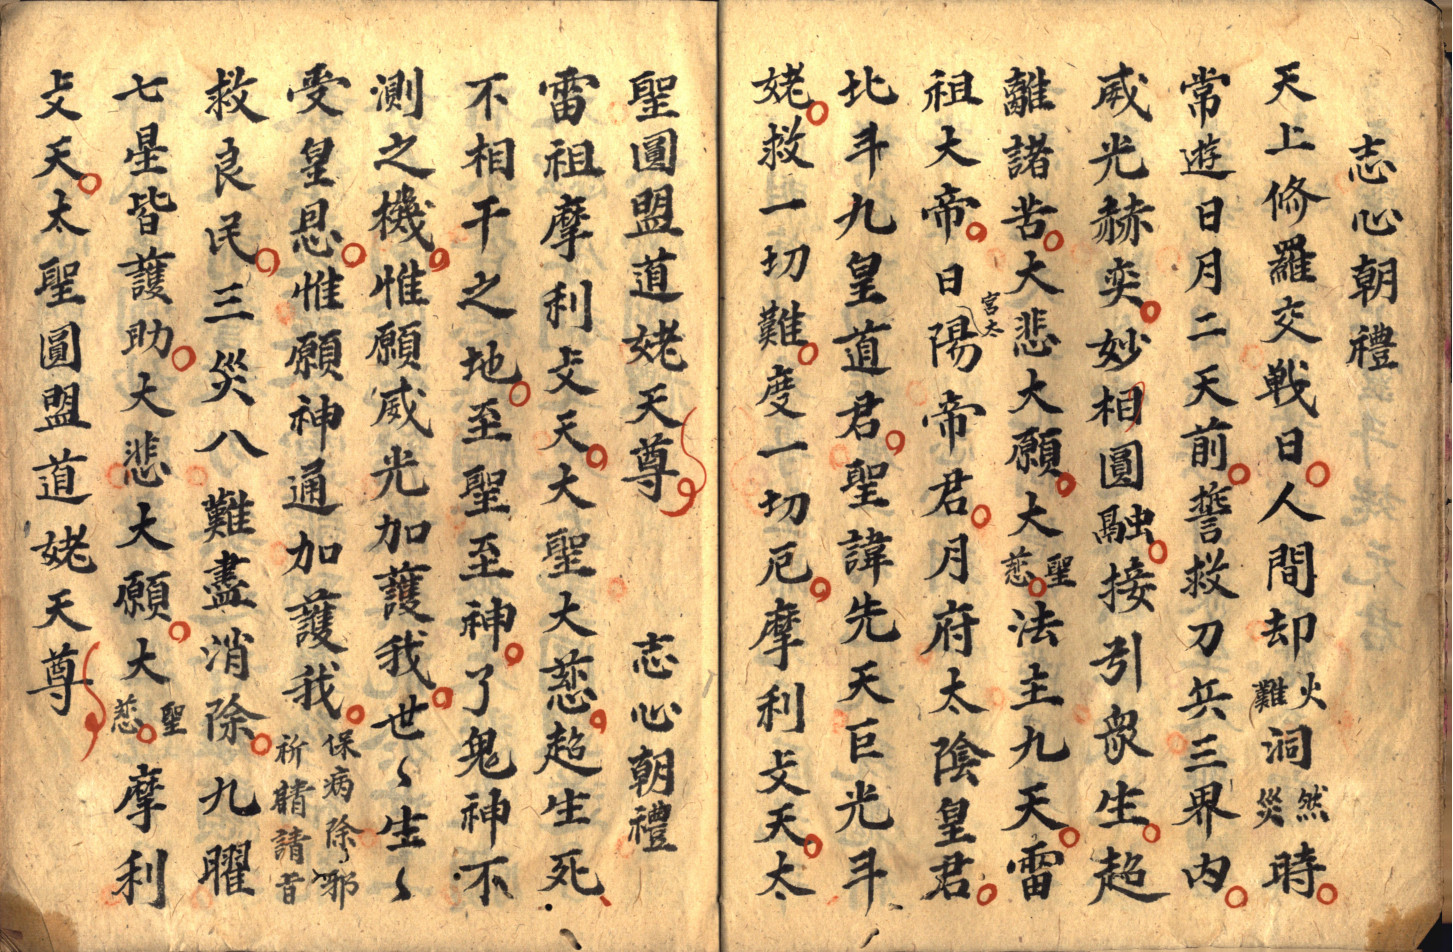 志心朝禮
天上修羅交戰日人間却火難洞然災時
常遊日月二天前誓救刀兵三界內
威光赫奕妙相圓融接引衆生超
離諸苦大悲大願大聖慈法主九天雷
祖大帝日宮太陽帝君月府太陰皇君
北斗九皇道君聖諱先天巨光斗
姥救一切難度一切厄摩利攴天太
聖圓盟道姥天尊 志心朝禮
雷祖摩利攴天大聖大慈超生死
不相干之地至聖至神了鬼神不
測之機惟願威光加護我世〻生〻
受皇恩惟願神通加護我保病除邪祈請首
救良民三災八難盡消除九曜
七星皆護助大悲大願大聖慈摩利
攴天太聖圓盟道姥天尊